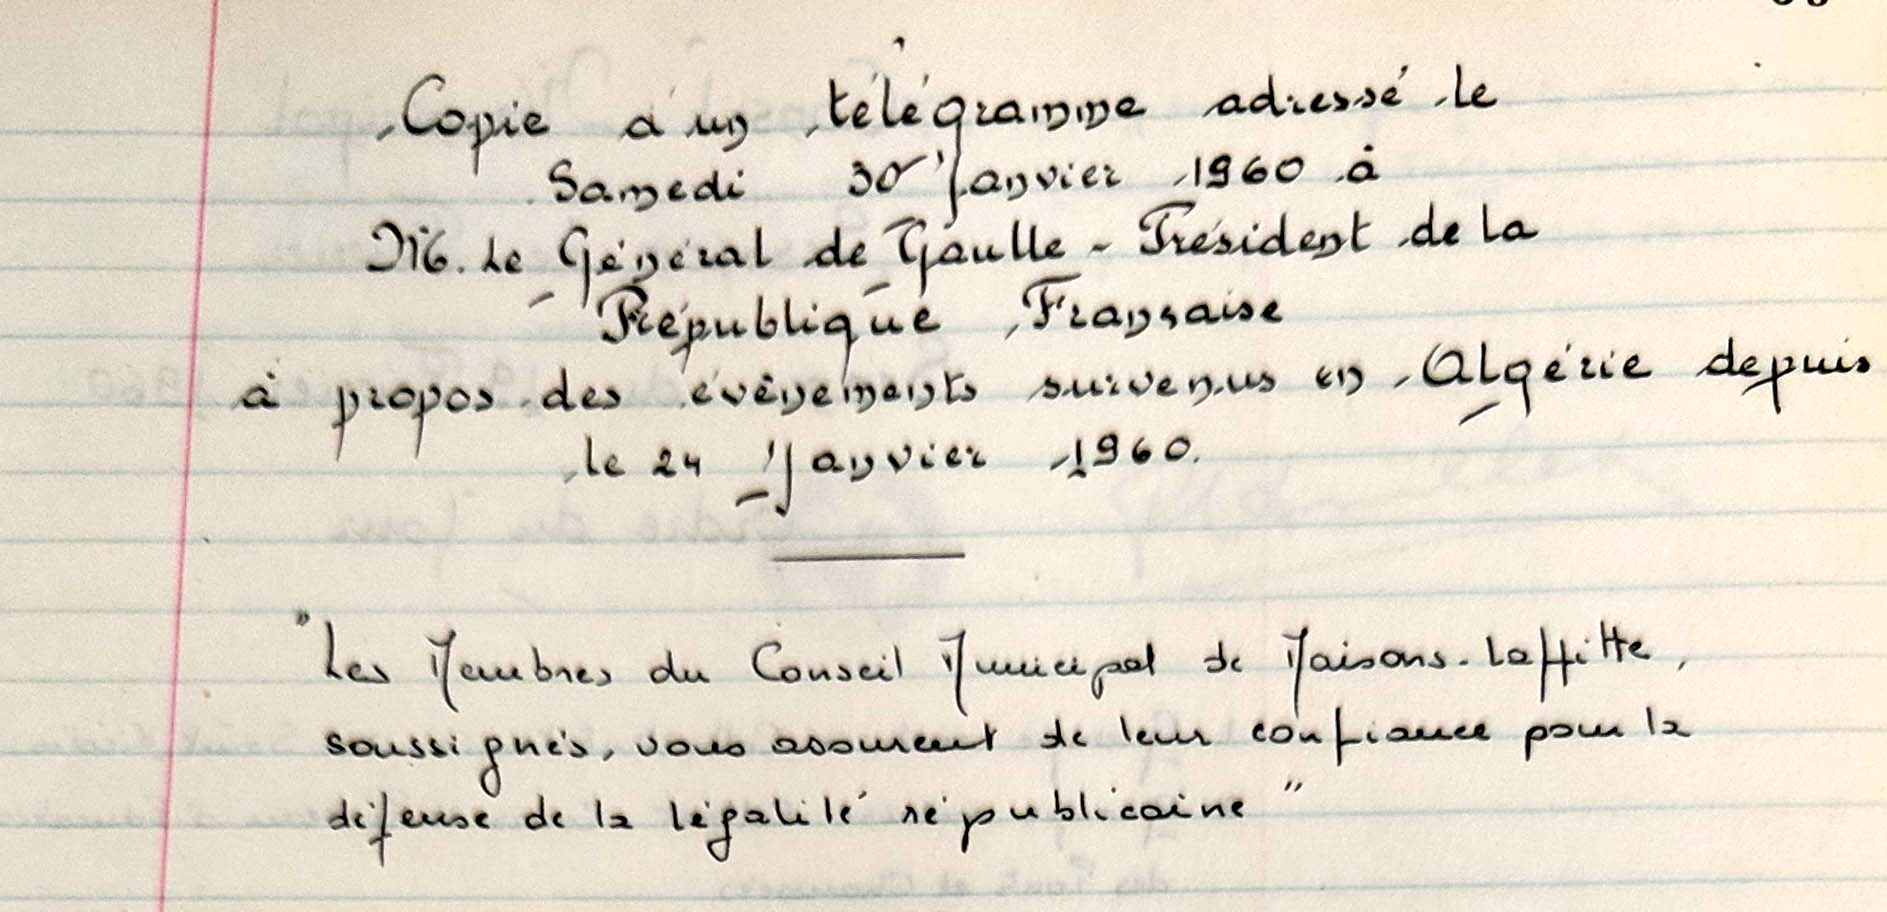 Copie d'un télégramme adressé le
Samedi 30 Janvier 1960 à
M. Le Général de Gaulle - Président de la
République Française
à propos des évènements survenus en Algérie depuis
le 24 Janvier 1960.
"Les Membres du Conseil Municipal de Maisons-Laffitte,
soussignés, vous assurent de leur confiance pour la
défense de la légalité républicaine"